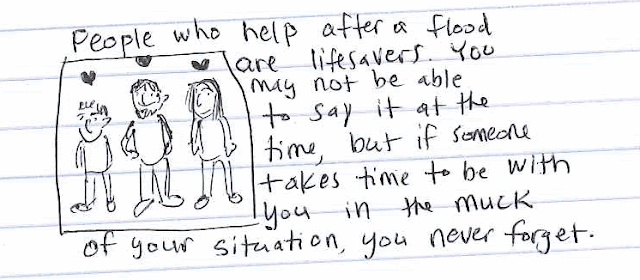 People who help after a flood
are lifesavers. You
may not be able
to say it at the
time, but if someone
takes time to be with
you in the muck
of your situation, you never forget.